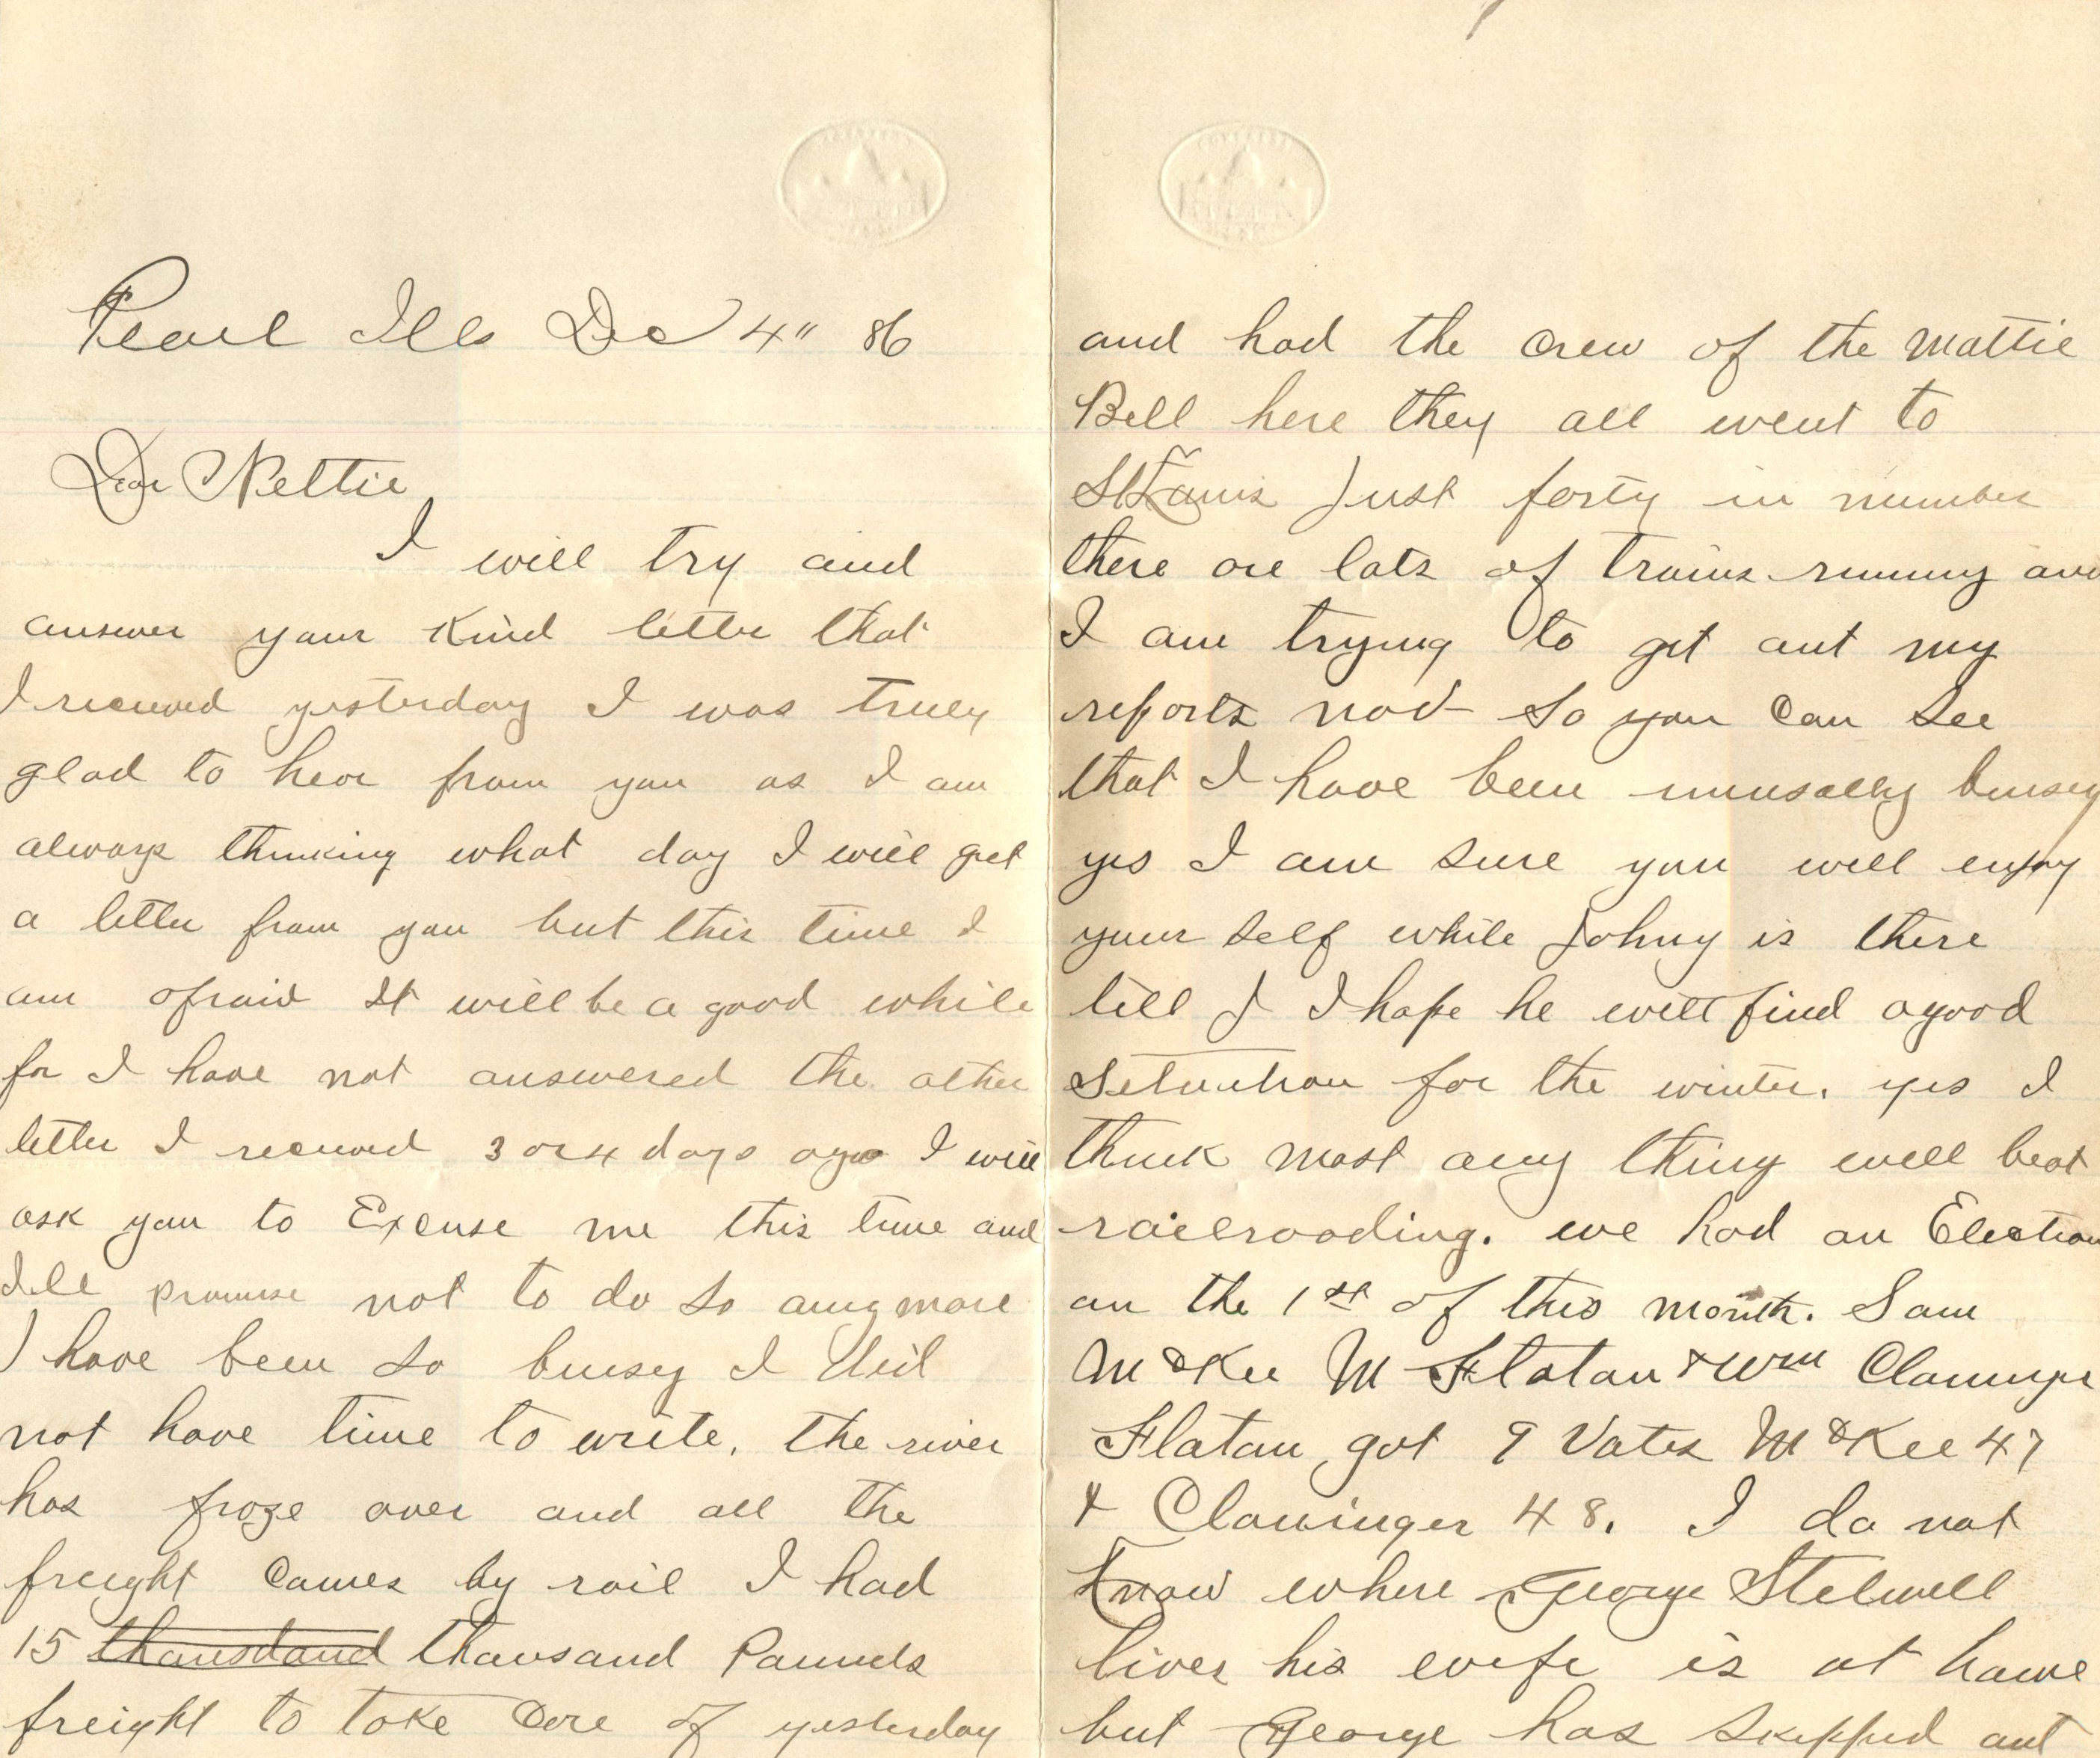 Pearl Ills Dec 4" 86
Dear Nettie
I will try and
answer your kind letter that
I recieved yesterday I was truly
glad to hear from you as I am
always thinking what day I will get
a letter from you but this time I
am afraid It will be a good while
for I have not answered the other
letter I recieved 3 or 4 days ago I will
ask you to Excuse me this time and
Ill promise not to do so any more
I have been so buisy I did
not have time to write. the river
has froze over and all the
freight comes by rail I had
15 thousdand thousand Pounds
freight to take Care of yesterday
and had the crew of the Mattie
Bell here they all went to
St Louis Just forty in number
there are lots of trains running and
I am trying to get out my
reports now so you can see
that I have been unusally buisy
yes I am sure you will enjoy
your self while Johny is there
till J I hope he will find a good
Setuation for the winter. yes I
think most any thing will beat
railroading. we had an Election
on the 1st of this month. Sam
McKee M Flatau & Wm Clowinger
Flatau got 9 Votes McKee 47
& Clowinger 48. I do not
Know where George Stelwell
lives his wife is at home
but George has skipped out